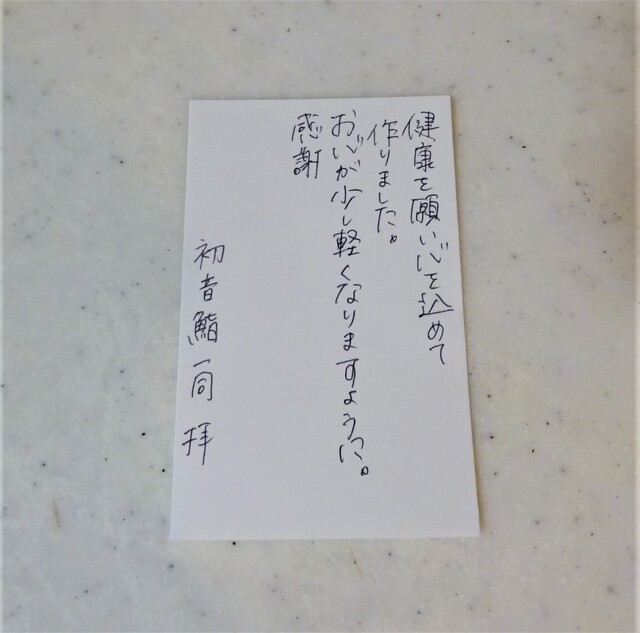 健康を願い心を込めて
作りました。
お心が少し軽くなりますように。
感謝
初音鮨一同 拝